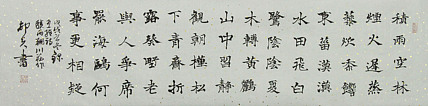 積雨空林
煙火遲蒸
藜炊黍餉
東菑漠漠
水田飛白
鷺陰陰夏
木囀黃鸝
山中習靜
觀朝槿松
下清齋折
露葵野老
與人爭席
罷海鷗何
事更相疑
王維詩
積雨輞川莊作
書